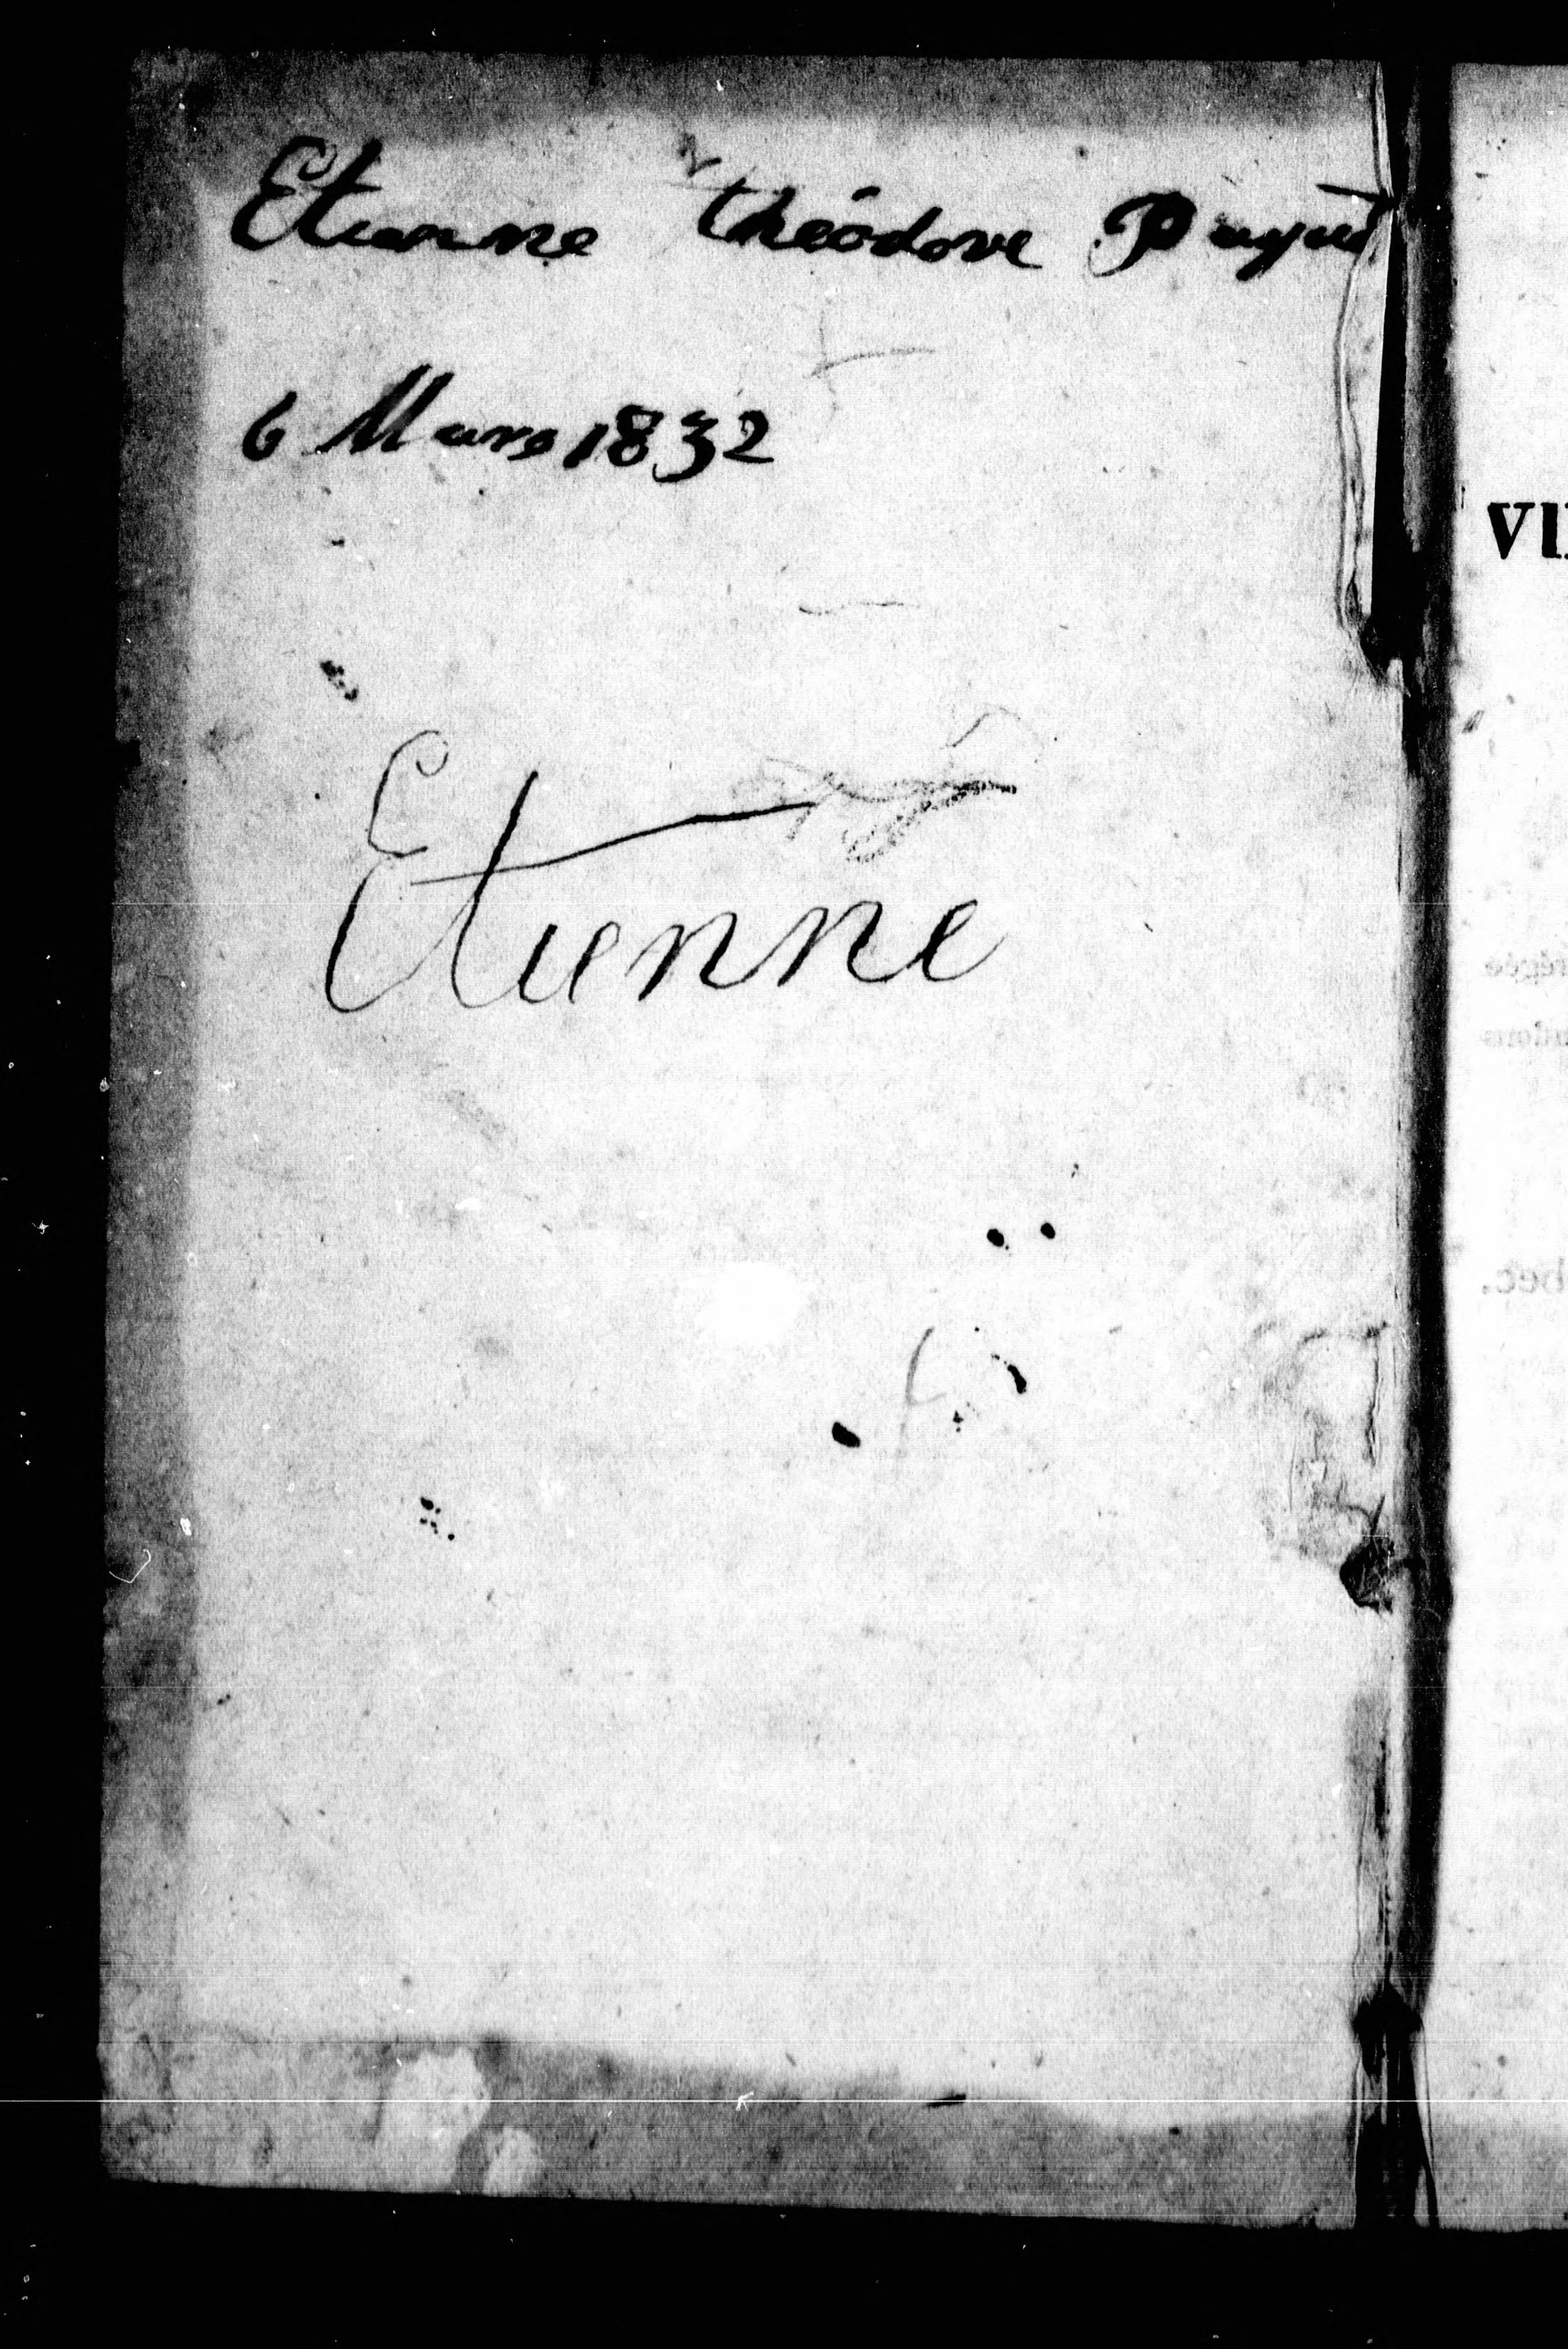 Etienne théodore Paquet
6 Mars 1832
Etienne
VI